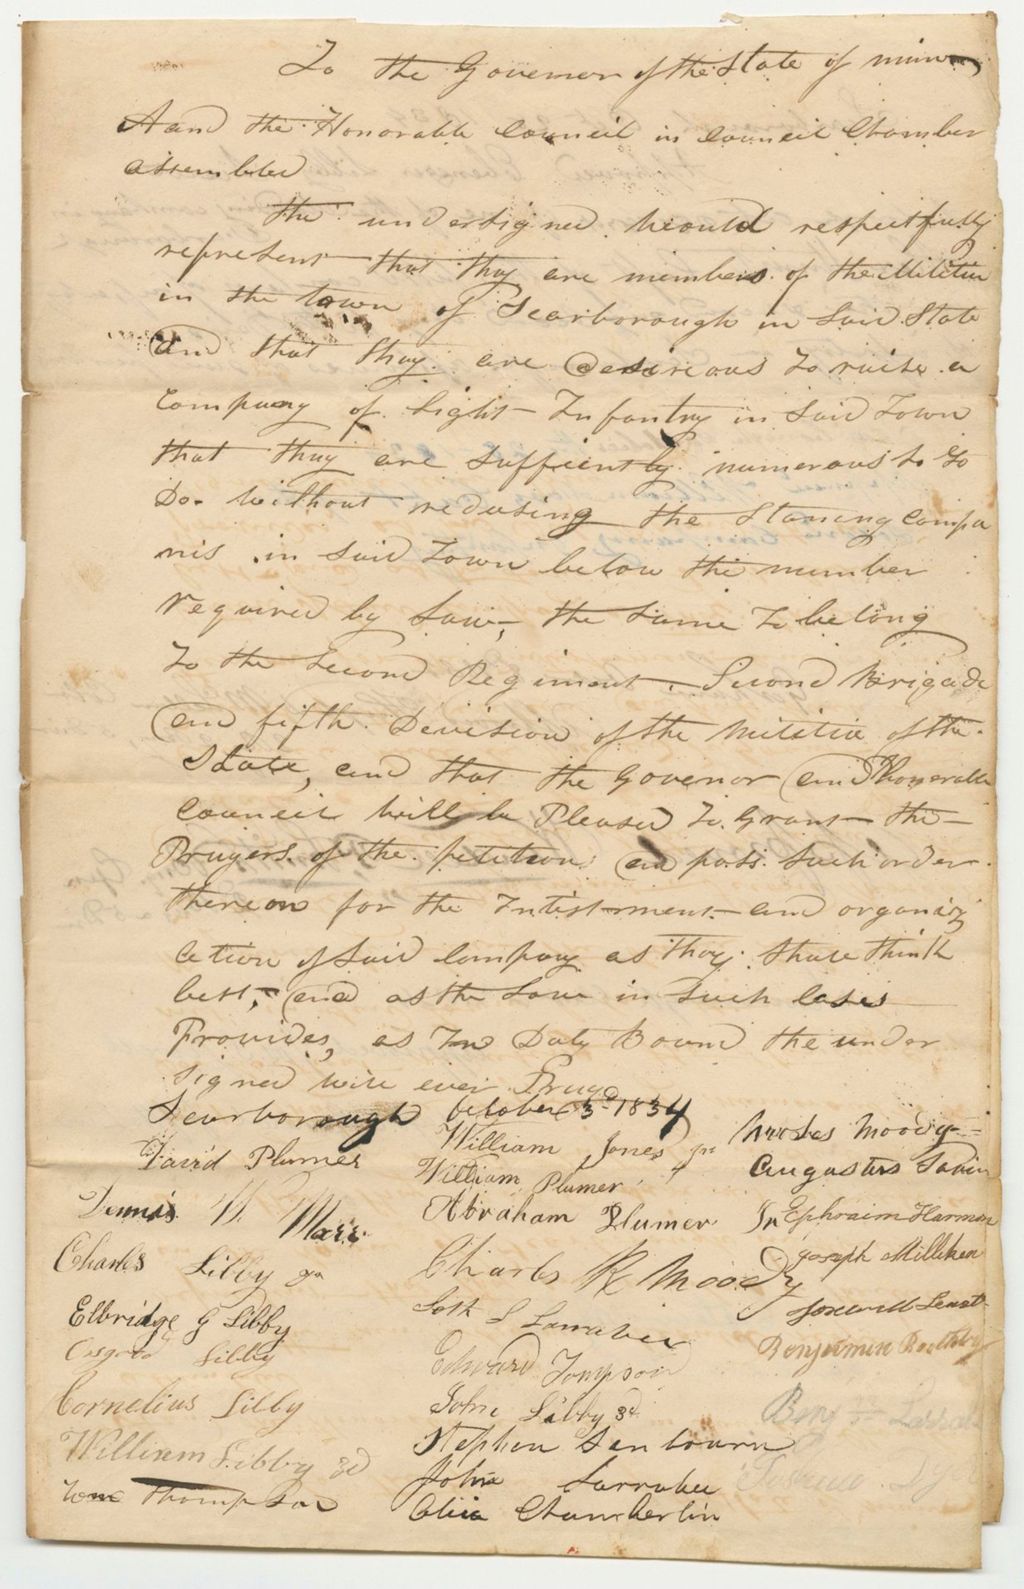 To the Governer of the State of
And the Honorable Council in Council Chamber
assembled
The undersigned Would respectfully
represent that thay are members of the Militia
in the town of Scarborough in Said State
and that thay are desireous to raise a
Company of Light Infantry in Said Town
that thay are Suffiently numerous to
Do without redusing the Standing compa
nis in Said Town below the number
required by Law, the Same To belong
To the Second Regiment Second Brigade
and fifth Devision of the Militia of the
State, and that the Govenor and Honorable
Council will be Pleased To Grant the
Prayers of the petition and pass Such order
thereon for the Intistment and organiz
ation of Said Company as thay Shall think
best, and as the Law in Such Cases
Provides, as In Duty Bound the under
Signed will ever Pray
Scarborough October 3d 1834
David Plumer
Dennis W. Marr
Charles Libby Jr
Elbridge G Libby
Osgood Libby
Cornelius Libby
William Libby 3d
Thompson
William Jones Jr
William Plumer
Abraham Plumer Jr
Charles R Moody
Seth L Larrabee
Edward Tompson
John Libby 3d
Stephen Senbourn
John Larrabee
Chamberlin
Moody
Augustus
Ephraim Harmon
Joseph Milliken
Benjemin Boothby
Benj